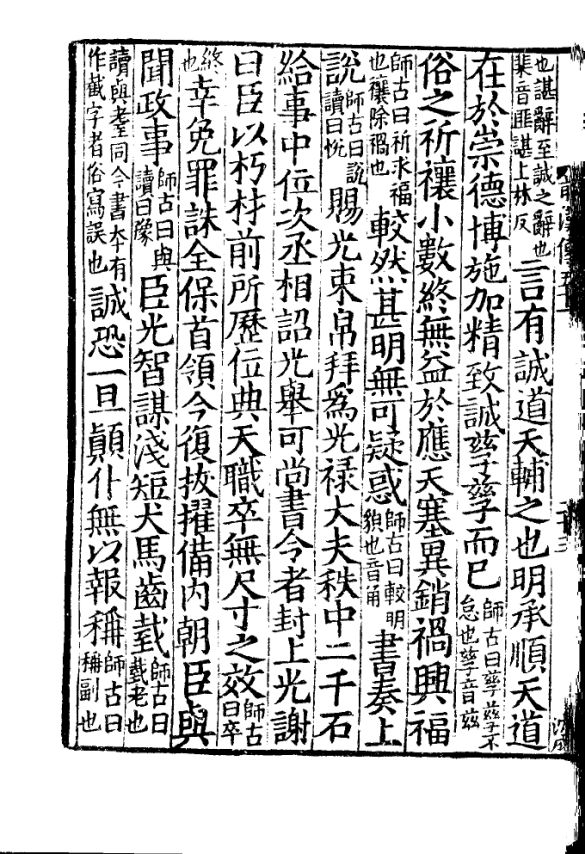 也諶辭至誠之辭也棐音匪諶上林反言有誠道天輔之也明承順天道
在於崇德博施加精致誠孳孳而已師古曰孳孳不怠也孳音茲
俗之祈禳小數終無益於應天塞異銷禍興福
師古曰祈求福也禳除禍也較然甚明無可疑惑師古曰較明貌也音角書奏上
說師古曰說讀曰悅賜光束帛拜爲光祿大夫秩中二千石
給事中位次丞相詔光舉可尚書令者封上光謝
曰臣以朽材前所歷位典大職卒無尺寸之效師古曰卒
終也幸免罪誅全保首領今復拔擢備內朝臣與
聞政事師古曰與讀曰豫臣光智謀淺短犬馬齒臷師古曰臷老也
讀與耋同今書本有作截字者俗寫誤也誠恐一旦顚仆無以報稱師古曰稱副也